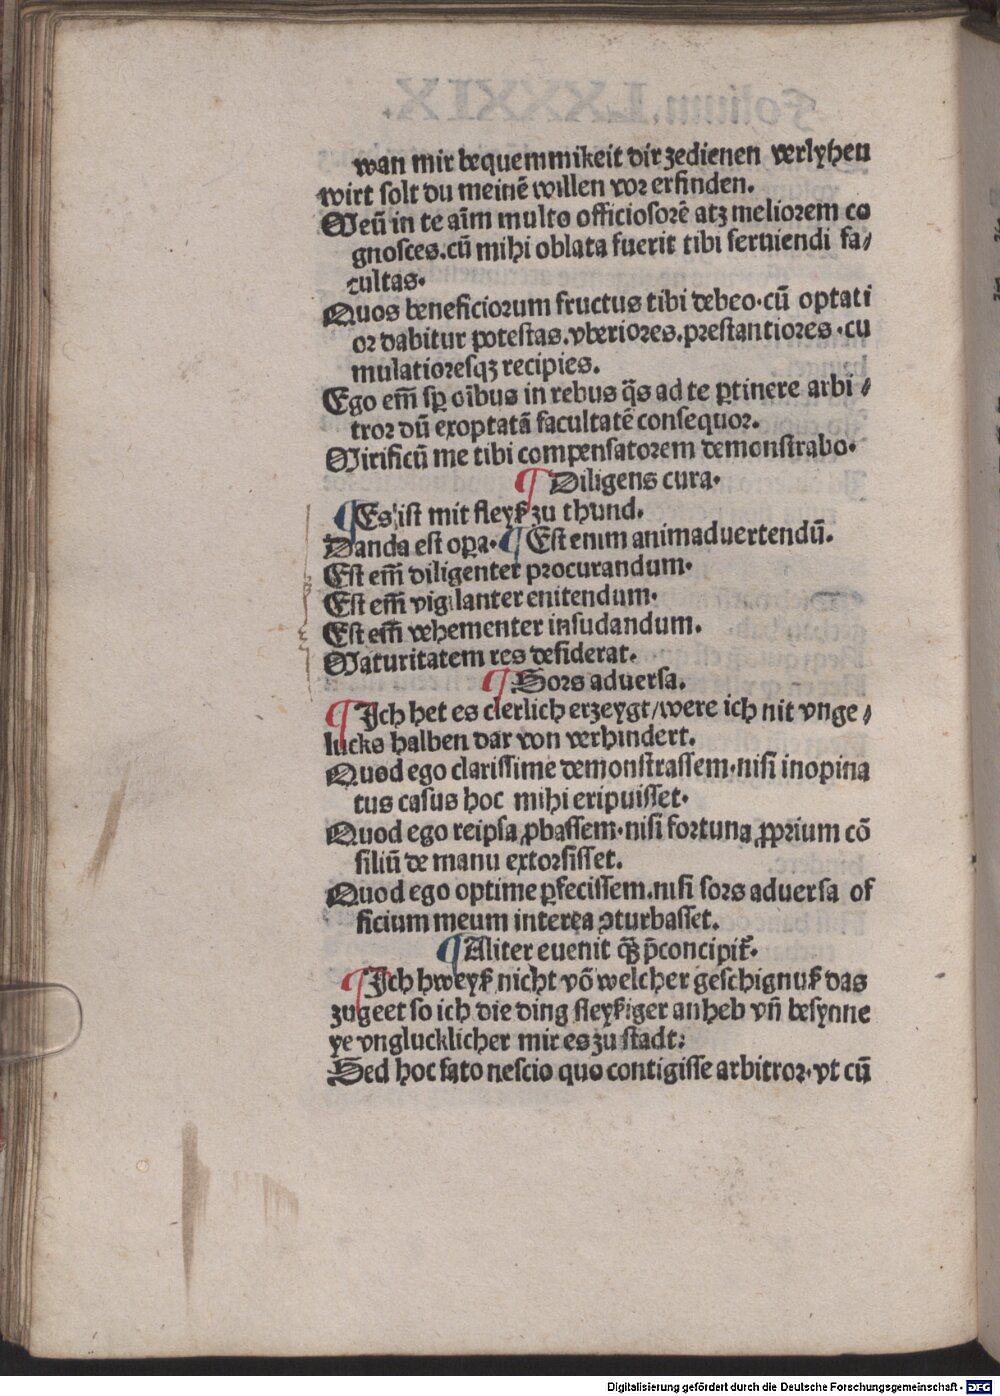 wan mir bequemmikeit dir zedienen verlyhen
wirt solt du meinē willen vor erfinden.
Meū in te aīm multo officiosorē atqꝫ meliorem co
gnosces. cū mihi oblata fuerit tibi seruiendi fa/
cultas.
Quos beneficiorum fructus tibi debeo. cū optati
or dabitur potestas. vberiores. prestantiores. cu
mulatioresqꝫ recipies.
Ego em̄ sp̄ oībus in rebus q̄s ad te ꝑtinere arbi/
tror dū exoptatā facultatē consequor.
Mirificū me tibi compensatorem demonstrabo.
¶ Diligens cura.
¶ Es ist mit fleyß zu thund.
Danda est oꝑa. ¶ Est enim animaduertendū.
Est em̄ diligenter procurandum.
Est em̄ vigilanter enitendum.
Est em̄ vehementer insudandum.
Maturitatem res desiderat.
¶ Sors aduersa.
¶ Ich het es clerlich erzeygt/were ich nit vnge/
lucks halben dar von verhindert.
Quod ego clarissime demonstrassem. nisi inopina
tus casus hoc mihi eripuisset.
Quod ego reipsa ꝓbassem. nisi fortuna ꝓprium cō
siliū de manu extorsisset.
Quod ego optime ꝑfecissem. nisi sors aduersa of
ficium meum interea ꝯturbasset.
¶ Aliter euenit qꝫ̄ p̄concipit᷑.
¶ Ich hweyß nicht vō welcher geschignuß das
zugeet so ich die ding fleyßiger anheb vn̄ besynne
ye vnglucklicher mir es zu stadt:
Sed hoc fato nescio quo contigisse arbitror. vt cū
Digitalisierung gefördert durch die Deutsche Forschungsgemeinschaft - DFG